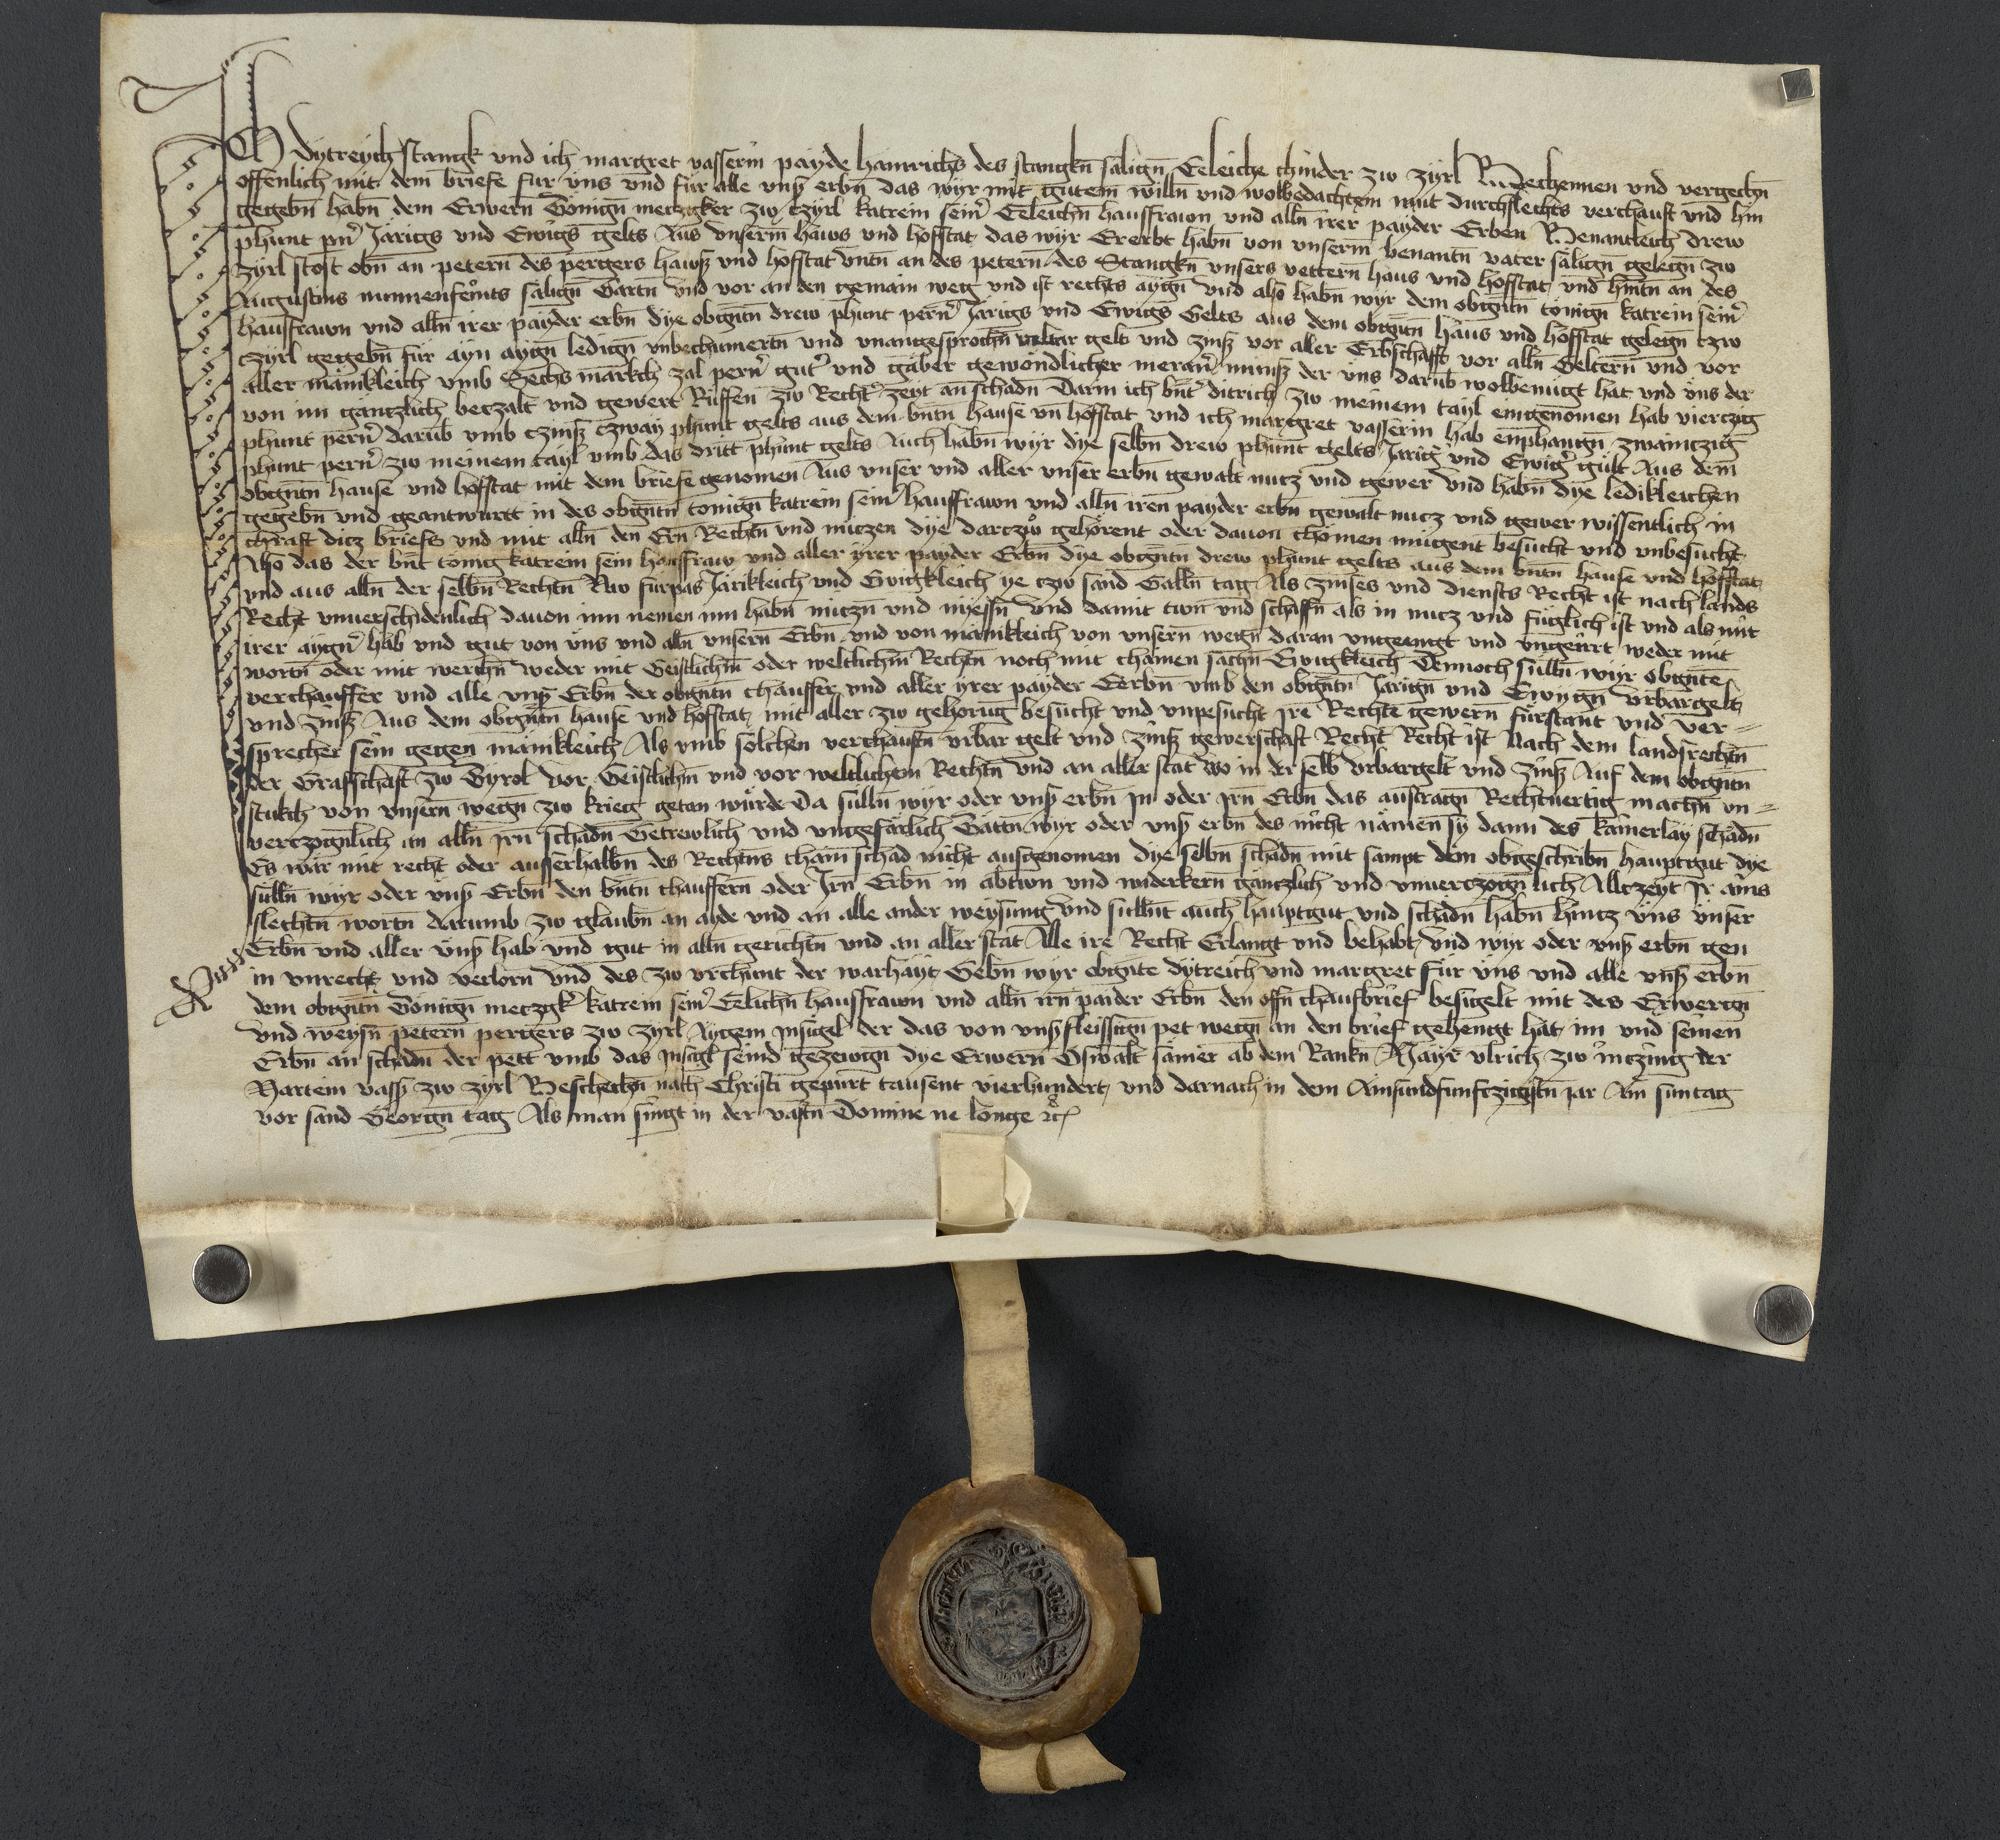 Ich dytreych stangk vnd ich margret vasserin payde hainrichs des stangkn̄ sälign̄ Eeleiche chinder zw zÿrl Bechennen vnd vergechn̄
offenlich mit dem briefe fur vns vnd für alle vnß erbn̄ das wyr mit gutem willn̄ vnd wolbedachtem mut durchslechts verchauft vnd hin
gegebn̄ habn̄ dem Erwern̄ Tönign̄ meczgker zw czyrl katrein sein̄ Eeleichn̄ hausfrawn vnd alln̄ irer payder Erben Benantleich drew
phunt pn̄ Järigs vnd Ewigs gelts Aus vnserm haws vnd hofstat das wyr Ererbt habn̄ von vnserm benantn̄ vater sälign̄ gelegn̄ zw
zyrl stost obn̄ an petern̄ des pergers hawß vnd hofstat vntn̄ an des petern des Stangkn̄ vnsers vettern̄ haus vnd hofstat vnd hintn̄ an des
Augustins sälign̄ Gartn̄ vnd vor an den gemain weg vnd ist rechts aygn̄ vnd also habn̄ wyr dem obign̄tn̄ tönign̄ katrein sein̄
hausfrawn vnd alln̄ irer payder erbn̄ dye obign̄tn̄ drew phunt pern̄ Järigs vnd Ewigs Gelts aus dem obign̄tn̄ haus vnd hofstat gelegn̄ czw
czyrl gegebn̄ für ayn aygn̄ ledign̄ vnbechumertn̄ vnd vnangesprochn̄ vrbar gelt vnd zinß vor aller Erbschafft vor alln̄ Geltern̄ vnd vor
aller mänikleich vmb Sechs markch zal pern̄ gut vnd gäber gewöndlicher meran̄ müniß der vns darūb wolbenügt hat vnd vns der
von im gäntzlich beczalt vnd gewert Rüffen zw Recht zeyt an schadn̄ Darin ich bn̄t ditrich zw meinem tayl eingenomen hab vierczig
phunt pern̄ darūb vmb czinß czway phunt gelts aus dem bn̄tn̄ hause vn̄ hofstat vnd ich margret vasserin hab enphangn̄ zwainczig
phunt pern̄ zw meinem tayl vmb das dritt phunt gelts Auch habn̄ wyr dye selbn̄ drew phunt gelts Järig vnd Ewig gült Aus dem
obign̄tn̄ hause vnd hofstat mit dem briefe genomen Aus vnser vnd aller vnser erbn̄ gewalt nucz vnd gewer vnd habn̄ dye ledikleichen
gegebn̄ vnd geantwurtt in des obign̄tn̄ tönign̄ katrein sein̄ hausfrawn vnd alln̄ iren payder erbn̄ gewalt nucz vnd gewer wissentlich in
chraft dicz briefs vnd mit alln̄ den Ern̄ Rechtn̄ vnd nüczen dye darczu gehörent oder dauon chömen mügent besücht vnd vnbesücht
Also das der bn̄t tönig katrein sein hausfraw vnd aller yrer payder Erbn̄ dye obign̄tn̄ drew phunt gelts aus dem bn̄tn̄ hause vnd hofstat
vnd aus alln̄ der selbn̄ Rechtn̄ Nw fürpas Järikleich vnd Ewigkleich ye czw sand Galln̄ tag Als zinses vnd diensts Recht ist nach lands
Recht vnuerschidenlich dauon inn nemen inn habn̄ nüczn̄ vnd nyessn̄ vnd damit twn̄ vnd schaffn̄ als in nucz vnd füglich ist vnd als mit
irer aygn̄ hab vnd gut von vns vnd alln̄ vnsern̄ Erbn̄ vnd von mänikleich von vnsern̄ wegn̄ daran vngeengt vnd vngeirrt weder mit
wortn̄ oder mit werchn̄ weder mit Geistlichn̄ oder weltlichn̄ Rechtn̄ noch mit chainen sachn̄ Ewigkleich Dennoch sülln̄ wyr obign̄te
verchauffer vnd alle vnß Erbn̄ der obign̄tn̄ chauffer vnd aller yrer payder Eerbn̄ vmb den obign̄tn̄ Järign̄ vnd Ewygn̄ vrbargelt
vnd zinß Aus dem obign̄tn̄ hause vnd hofstat mit aller zw gehorūg besücht vnd vnpesucht Jre Rechte gewern̄ fürstant vnd ver=
sprecher sein gegen mänikleich Als vmb sölchen verchauftn̄ vrbar gelt vnd zinß gewerschaft Recht Recht ist Nach dem landsrechtn̄
der Grafschaft zw Tyrol vor Geistlichn̄ vnd vor weltlichem Rechtn̄ vnd an aller stat Wo in der selb vrbargelt vnd zinß Auf dem obign̄tn̄
stukch von vnsern̄ wegn̄ zw krieg getan würde Da sülln̄ wyr oder vnß erbn̄ Jn oder Jrn̄ Erbn̄ das austragn̄ Rechtuertig machn̄ vn=
verczogn̄lich an alln̄ Jrn̄ schadn̄ Getrewlich vnd vngefärlich Tättn̄ wyr oder vnß erbn̄ des nicht nämen sy dann des kainerlay schadn̄
Es wär mit recht oder ausserhalbn̄ des Rechtn̄s chain schad nicht ausgenomen dye selbn̄ schadn̄ mit sampt dem obgeschribn̄ hauptgut dye
sülln̄ wyr oder vnß Erbn̄ den bn̄tn̄ chauffern̄ oder Jrn̄ Erbn̄ in abtwn̄ vnd widerkern̄ gäntzlich vnd vnuerczogn̄lich Allczeyt Jr ains
slechtn̄ wortn̄ darumb zw glaubn̄ an ayde vnd an alle ander weysung vnd sullnt auch hauptgut vnd schadn̄ habn̄ hintz vns vnser
Erbn̄ vnd aller vnß hab vnd gut in alln̄ gerichtn̄ vnd an aller stat Alle ire Recht Erlangt vnd behabt vnd wyr oder vnß erbn̄ gen
in vnrecht vnd verlorn̄ vnd des zw vrchunt der warhayt Gebn̄ wyr obign̄te dytreich vnd margret für vns vnd alle vnß erbn̄
dem obign̄tn̄ Tönign̄ meczgk katrein sein̄ Eelichn̄ hausfrawn vnd alln̄ irn̄ paider Erbn̄ den offn̄ chaufbrief besigelt mit des Erwergn̄
vnd weysn̄ petern̄ pergers zw zyrl Aygem Jnsigel der das von vnß fleissign̄ pet wegn̄ an den brief gehengt hat im vnd seinen
Erbn̄ an schadn̄ der pett vmb das Jnsigl seind gezewgn̄ dye Erwern̄ Oswalt sämer ab dem Rankn̄ Mayr vlrich zw Jnczing der
Martein vasß zw zyrl Beschechn̄ nach Christi gepurt tausent vierhundert vnd darnach in dem Ainsundfunfczigistn̄ jar Am suntag
vor sand Georgn̄ tag Als man singt in der vastn̄ Domine ne longe ꝛc